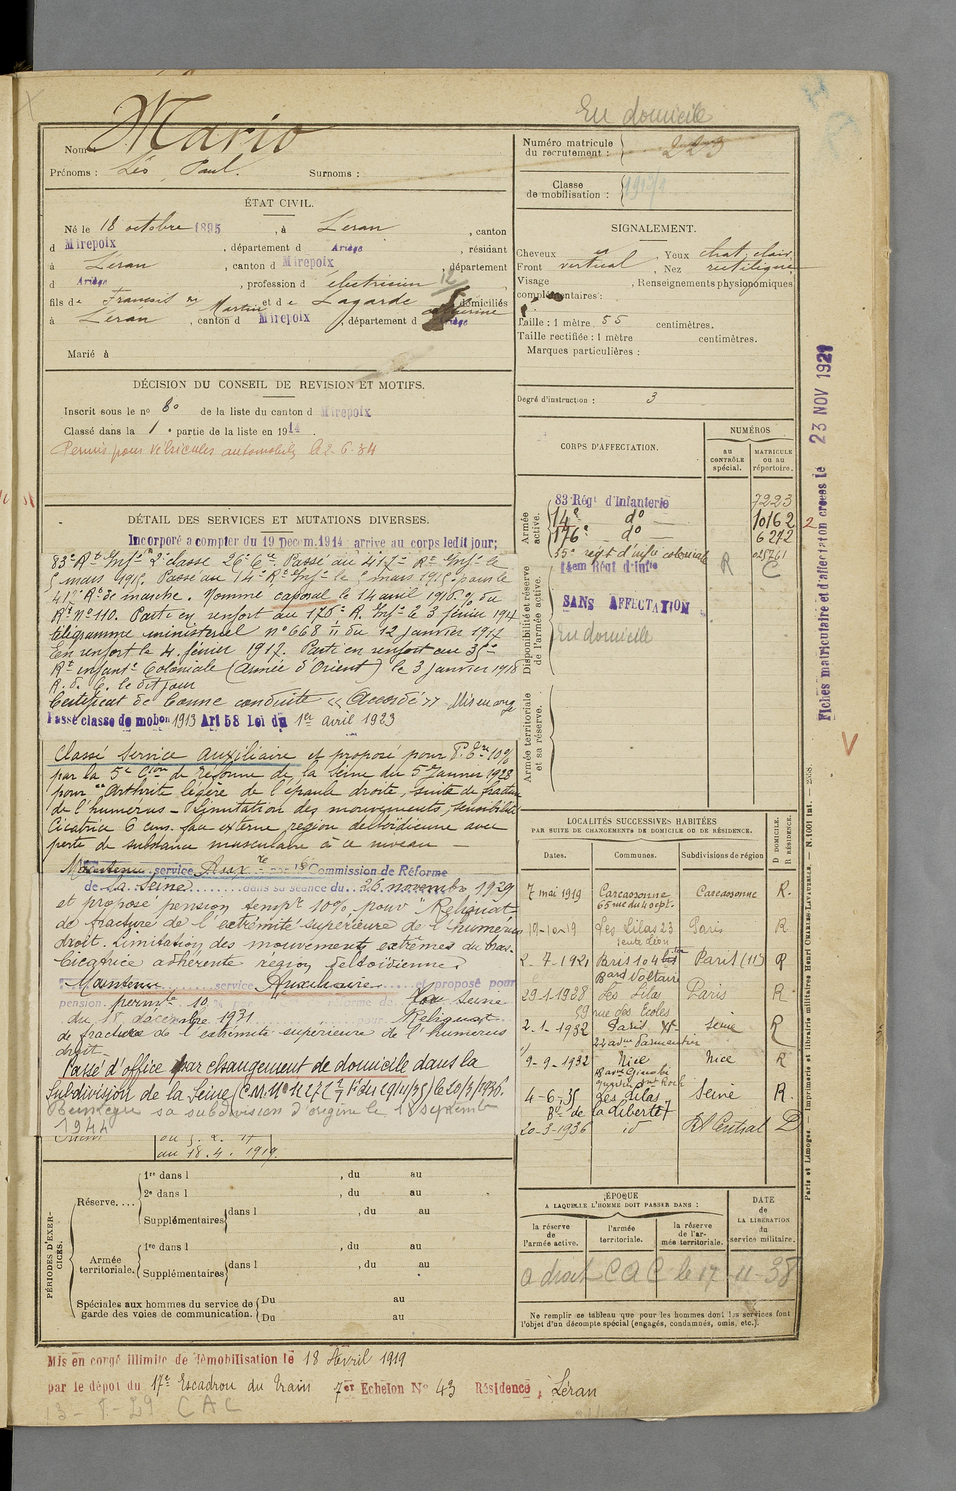 En domicile
Nom Mario
Prénoms : Léo, Paul. Surnoms :
Numéro matricule
du recrutement : 223
Classe
de mobilisation :
ÉTAT CIVIL.
Né le 18 octobre 1895, à Léran, canton
d Mirepoix, département d Ariège, résidant
à Léran, canton d Mirepoix, département
d Ariège, profession d électricien
fils de François Martin et de Lagarde domiciliés
à Léran, canton d Mirepoix, département d Ariège
Marié à
SIGNALEMENT.
Cheveux Yeux chat. clair
Front vertical, Nez rectiligne
Visage Renseignements physionomiques
complémentaires :
Taille : 1 mètre 55 centimètres.
Taille rectifiée : 1 mètre centimètres.
Marques particulières :
Degré d'instruction : 3
DÉCISION DU CONSEIL DE REVISION ET MOTIFS.
Inscrit sous le nº de la liste du canton d Mirepoix
Classé dans la 1e partie de la liste en 1914.
Permis pour véhicules automobiles le 2.6.34
CORPS D'AFFECTATION.
NUMÉROS
AU CONTRÔLE spécial.
MATRICULE OU AU répertoire.
Armée active.
83 Régt d'Infanterie 7223
14e do 10162
176e do 6272
35e régt d'infie coloniale
14em Régt d'Infie R C
Disponibilité et réserve de l'armée active.
SANS AFFECTATION
En domicile
Armée territoriale et sa réserve.
DÉTAIL DES SERVICES ET MUTATIONS DIVERSES.
Incorporé a compter du 19 Decem. 1914 arrive au corps ledit jour;
83e Rt Infie 2e classe 26e Cie. Passé au 417e Rt Infie le
5 mars 1915. Passé au 14e Rt Infie le 5 mars 1915 pour le
417e Rt de marche. Nommé caporal le 14 avril 1916 oj du
Rt Nº 110. Parti en renfort au 176e R. Infie le 3 février 1917
télégramme ministériel nº 668 II du 12 janvier 1917
En renfort le 4 février 1917. Parti en renfort au 35e
Rt Infante Coloniale (Armée d'Orient) le 3 janvier 1918
R. d. C. le dit jour
Certificat de bonne conduite « Accordé »
Passé classe de mobon 1913 Art 58 Loi du 1er avril 1923
Classé Service Auxiliaire et proposé pour P. Tre 10%
par la 5e Cion de Réforme de la Seine du 5 janvier 1928
pour "Arthrite légère de l'épaule droite, suite de fracture
de l'humérus - Limitation des mouvements, sensibilité
Cicatrice 6 cms. face externe, région deltoïdienne avec
perte de substance musculaire à ce niveau —
Maintenu service Auxre Commission de Réforme
de La Seine dans sa séance du 26 novembre 1929
et proposé pension tempre 10% pour "Reliquat
de fracture de l'extrémité supérieure de l'humérus
droit. Limitation des mouvements extrêmes du bras.
Cicatrice adhérente région deltoïdienne.
Maintenu service Auxiliaire et proposé pour
pension permte 10 réforme de Seine
du 18 décembre 1931 pour Reliquat
de fracture de l'extrémité supérieure de l'humérus
droit
Passé d'office par changement de domicile dans la
Subdivision de la Seine
Réintègre sa subdivision d'origine le 18 septembre
1944
au 18.4.1919.
LOCALITÉS SUCCESSIVES HABITÉES
PAR SUITE DE CHANGEMENTS DE DOMICILE OU DE RÉSIDENCE.
Dates. Communes. Subdivisions de région D DOMICILE. R RÉSIDENCE.
7 mai 1919 Carcassonne Carcassonne R.
65 rue du 4 sept.
Les Lilas 23 Paris R
2-7-1921 Paris 104 Paris R
Bard Voltaire
29-1-1928 Les Lilas Paris R
59 rue des Ecoles
2-1-1932 Paris XIe Seine R
22 avue Parmentier
9-9-1932 Nice Nice R
4-6-35 Les Lilas Seine R.
Bd de la Liberté
20-3-1936 id Central D
PÉRIODES D'EXERCICES.
Réserve....
1re dans l , du au
2e dans l , du au
Supplémentaires dans l , du au
Armée territoriale.
1re dans l , du au
Supplémentaires dans l , du au
Spéciales aux hommes du service de
garde des voies de communication.
Du au
Du au
ÉPOQUE
A LAQUELLE L'HOMME DOIT PASSER DANS :
la réserve de l'armée active.
l'armée territoriale.
la réserve de l'armée territoriale.
DATE de LA LIBÉRATION du service militaire.
a droit C A C le 17-11-38
Ne remplir ce tableau que pour les hommes dont les services font
l'objet d'un décompte spécial (engagés, condamnés, omis, etc.).
Mis en congé illimité de démobilisation le 18 Avril 1919
par le dépôt du 17e Escadron du Train 7er Echelon Nº 43 Résidence, Léran
C A C
Fiches matriculaire et d'affectation créées le 23 NOV 1921
Paris et Limoges. — Imprimerie et librairie militaires Henri CHARLES-LAVAUZELLE. — N. 1001 int. — 2558.